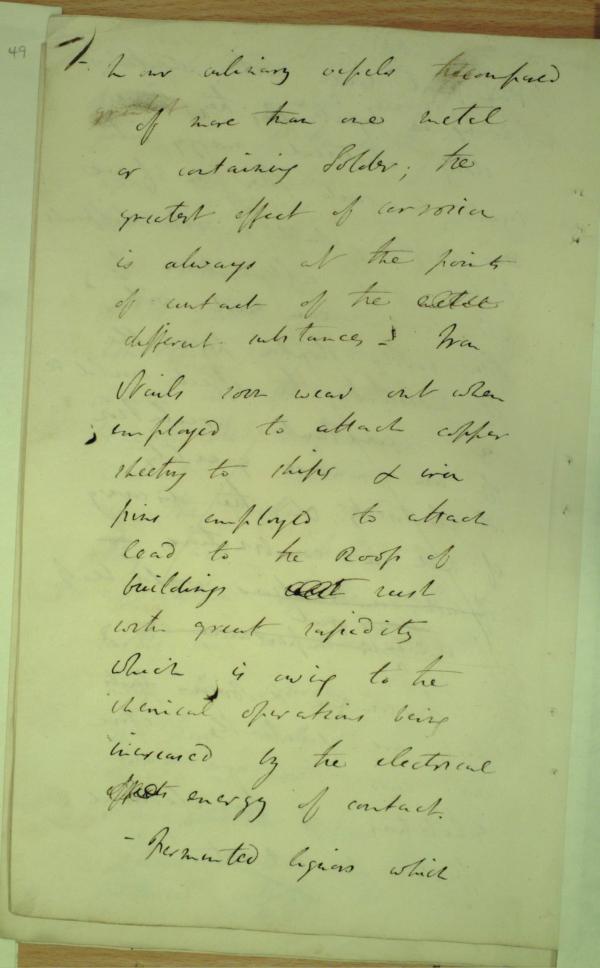 49
- In our culinary vessels composed
of more than one metal
or containing Solder; the
greatest effect of corrosion
is always at the points
of contact of the
different substances - Iron
Nails soon wear out when
employed to attach copper
sheeting to ships & iron
pins employed to attach
lead to the Roofs of
buildings rust
with great rapidity
which is owing to the
chemical operations being
increased by the electrical
effects energy of contact.
- Fermented liquors which